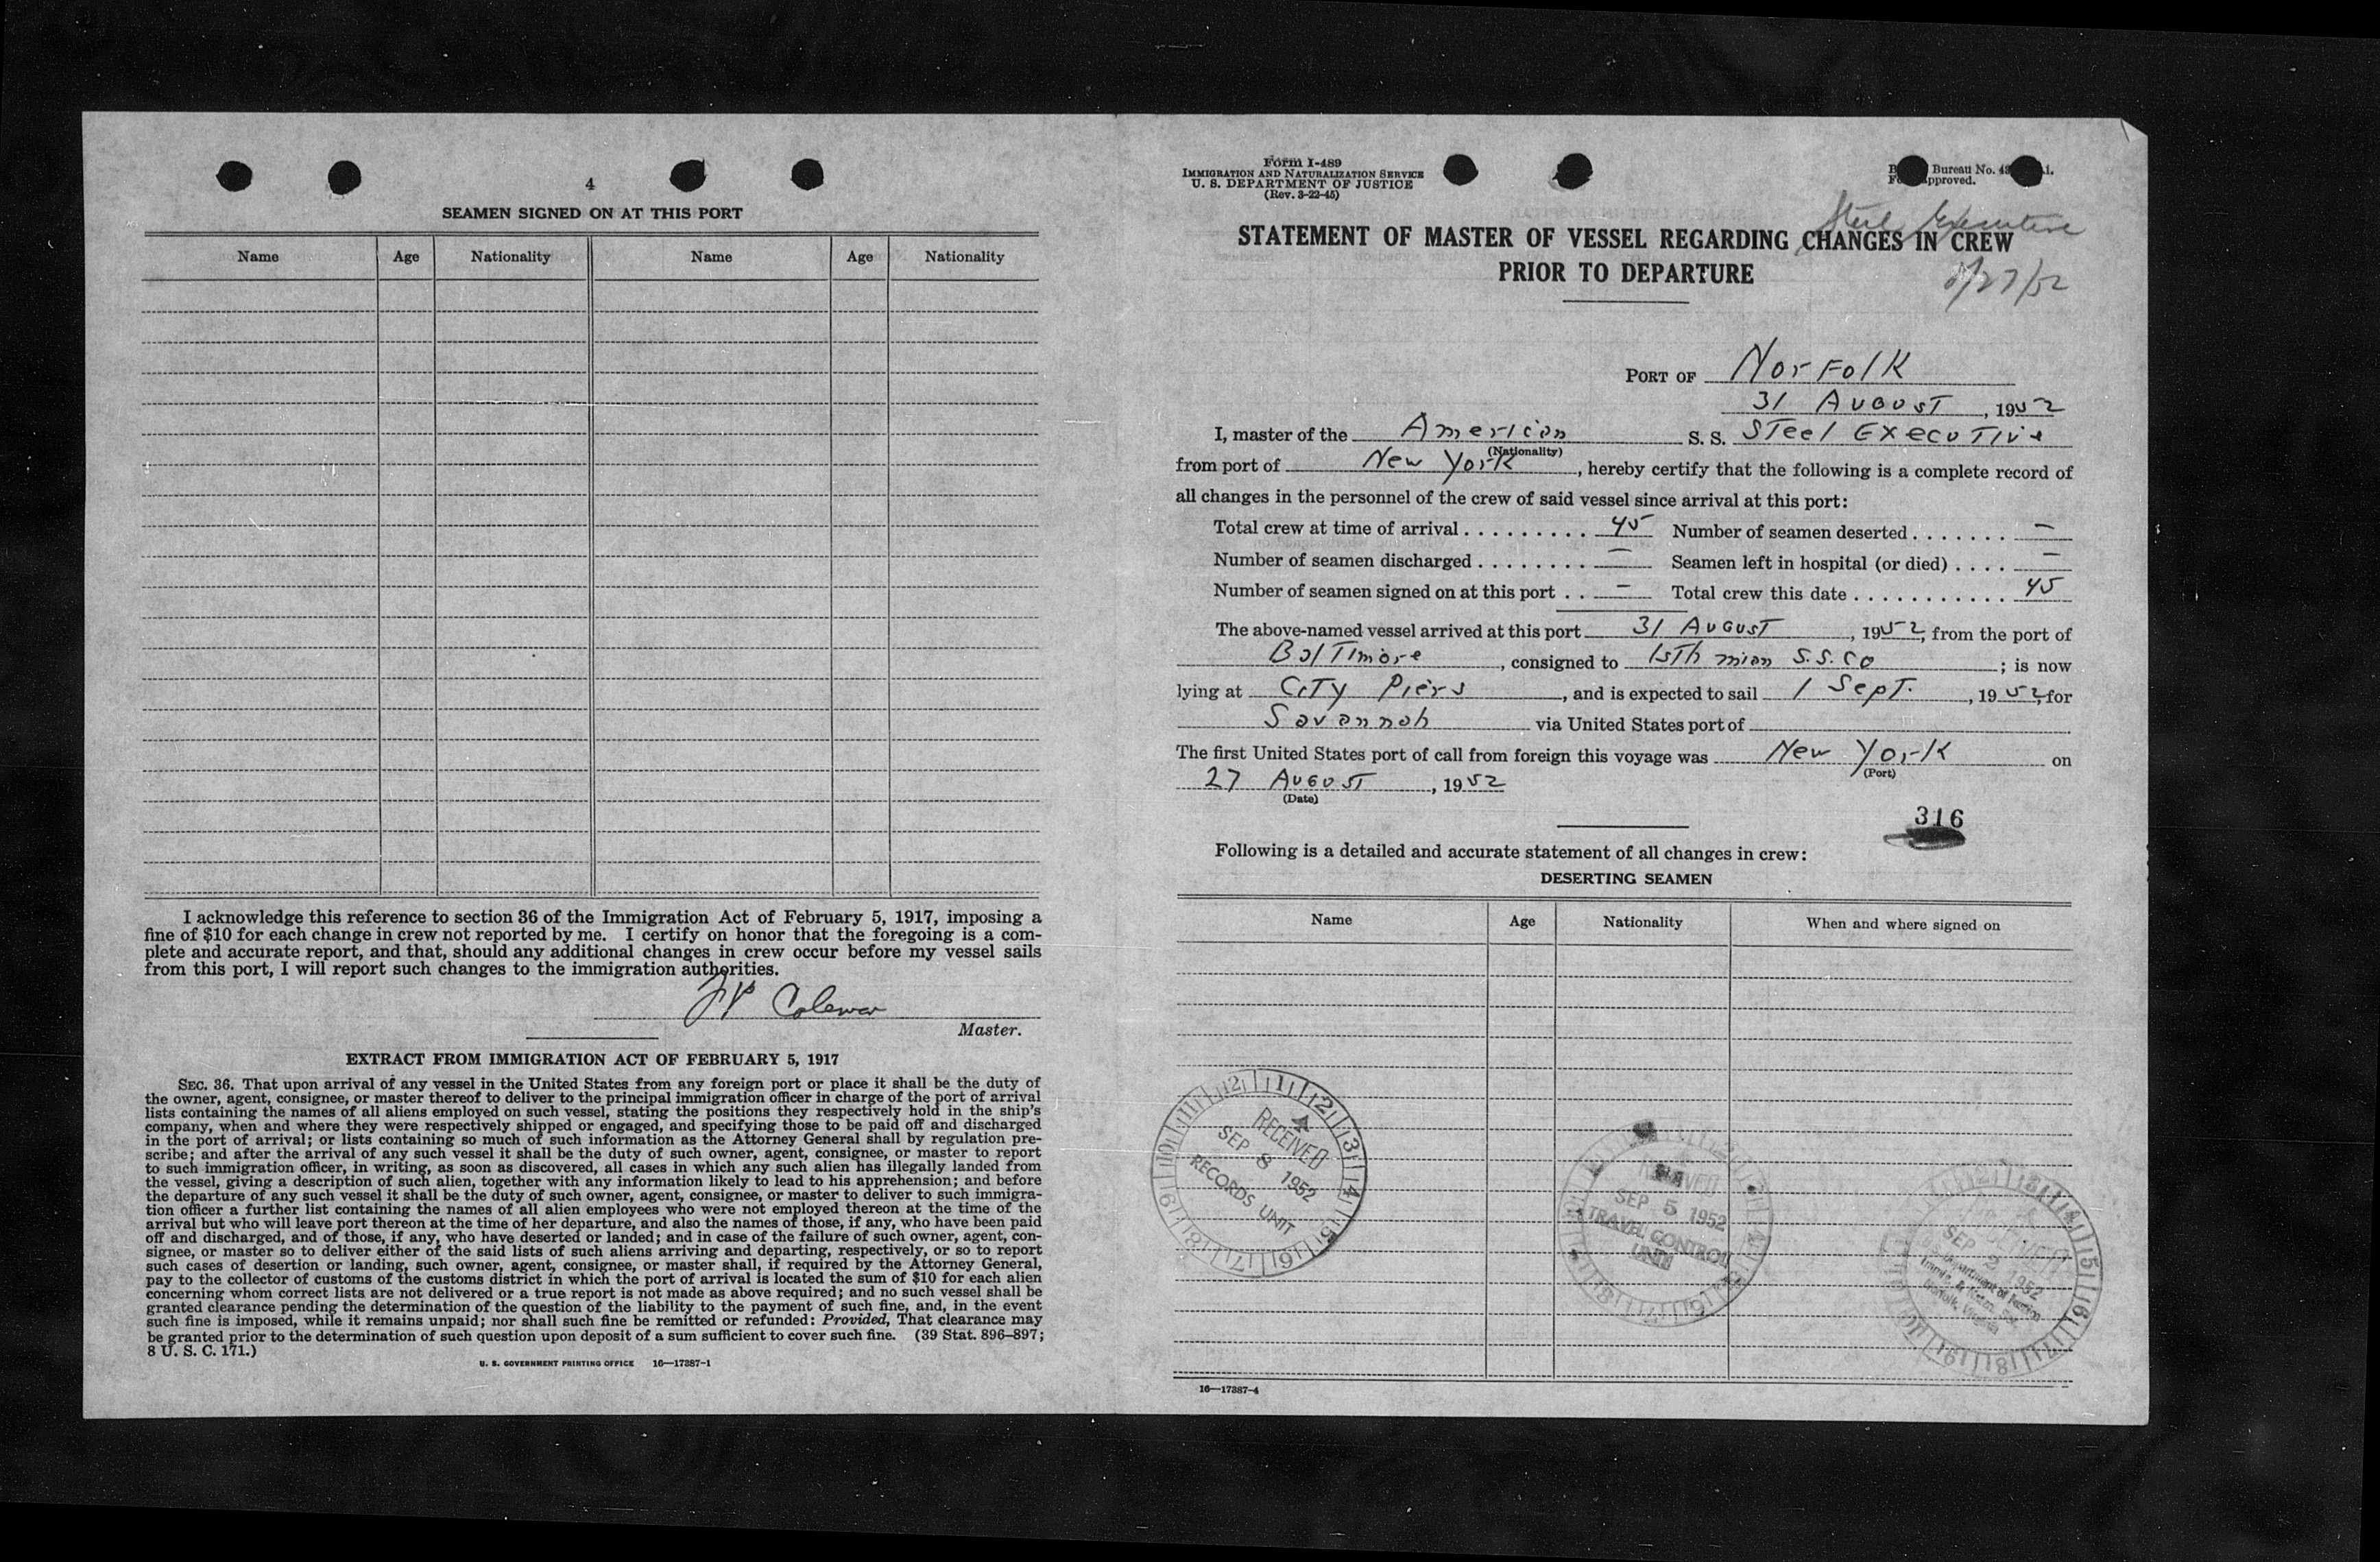 4
SEAMEN SIGNED ON AT THIS PORT
Name Age Nationality Name Age Nationality
I acknowledge this reference to section 36 of the Immigration Act of February 5, 1917, imposing a
fine of $10 for each change in crew not reported by me. I certify on honor that the foregoing is a com-
plete and accurate report, and that, should any additional changes in crew occur before my vessel sails
from this port, I will report such changes to the immigration authorities.
Master.
EXTRACT FROM IMMIGRATION ACT OF FEBRUARY 5, 1917
SEC. 36. That upon arrival of any vessel in the United States from any foreign port or place it shall be the duty of
the owner, agent, consignee, or master thereof to deliver to the principal immigration officer in charge of the port of arrival
lists containing the names of all aliens employed on such vessel, stating the positions they respectively hold in the ship's
company, when and where they were respectively shipped or engaged, and specifying those to be paid off and discharged
in the port of arrival; or lists containing so much of such information as the Attorney General shall by regulation pre-
scribe; and after the arrival of any such vessel it shall be the duty of such owner, agent, consignee, or master to report
to such immigration officer, in writing, as soon as discovered, all cases in which any such alien has illegally landed from
the vessel, giving a description of such alien, together with any information likely to lead to his apprehension; and before
the departure of any such vessel it shall be the duty of such owner, agent, consignee, or master to deliver to such immigra-
tion officer a further list containing the names of all alien employees who were not employed thereon at the time of the
arrival but who will leave port thereon at the time of her departure, and also the names of those, if any, who have been paid
off and discharged, and of those, if any, who have deserted or landed; and in case of the failure of such owner, agent, con-
signee, or master so to deliver either of the said lists of such aliens arriving and departing, respectively, or so to report
such cases of desertion or landing, such owner, agent, consignee, or master shall, if required by the Attorney General,
pay to the collector of customs of the customs district in which the port of arrival is located the sum of $10 for each alien
concerning whom correct lists are not delivered or a true report is not made as above required; and no such vessel shall be
granted clearance pending the determination of the question of the liability to the payment of such fine, and, in the event
such fine is imposed, while it remains unpaid; nor shall such fine be remitted or refunded: Provided, That clearance may
be granted prior to the determination of such question upon deposit of a sum sufficient to cover such fine. (39 Stat. 896–897;
8 U. S. C. 171.)
U. S. GOVERNMENT PRINTING OFFICE 16—17387-1
Form I-489
IMMIGRATION AND NATURALIZATION SERVICE
U. S. DEPARTMENT OF JUSTICE
(Rev. 3-22-45)
Bureau No.
approved.
Steel Executive
STATEMENT OF MASTER OF VESSEL REGARDING CHANGES IN CREW
PRIOR TO DEPARTURE
8/27/52
PORT OF Norfolk
31 August, 1952
I, master of the American S. S. Steel Executive
(Nationality)
from port of New York, hereby certify that the following is a complete record of
all changes in the personnel of the crew of said vessel since arrival at this port:
Total crew at time of arrival . . . . . . . . . 45 Number of seamen deserted . . . . . . . —
Number of seamen discharged . . . . . . . . — Seamen left in hospital (or died) . . . . —
Number of seamen signed on at this port . . — Total crew this date . . . . . . . . . . . 45
The above-named vessel arrived at this port 31 August, 1952, from the port of
Baltimore, consigned to Isthmian S.S. Co; is now
lying at City Piers, and is expected to sail 1 Sept., 1952, for
Savannah via United States port of
The first United States port of call from foreign this voyage was New York on
(Port)
27 August, 1952
(Date)
316
Following is a detailed and accurate statement of all changes in crew:
DESERTING SEAMEN
Name Age Nationality When and where signed on
RECEIVED
SEP 8 1952
RECORDS UNIT
RECEIVED
SEP 5 1952
TRAVEL CONTROL
UNIT
SEP 2 1952
Norfolk, Virginia
16—17387-4